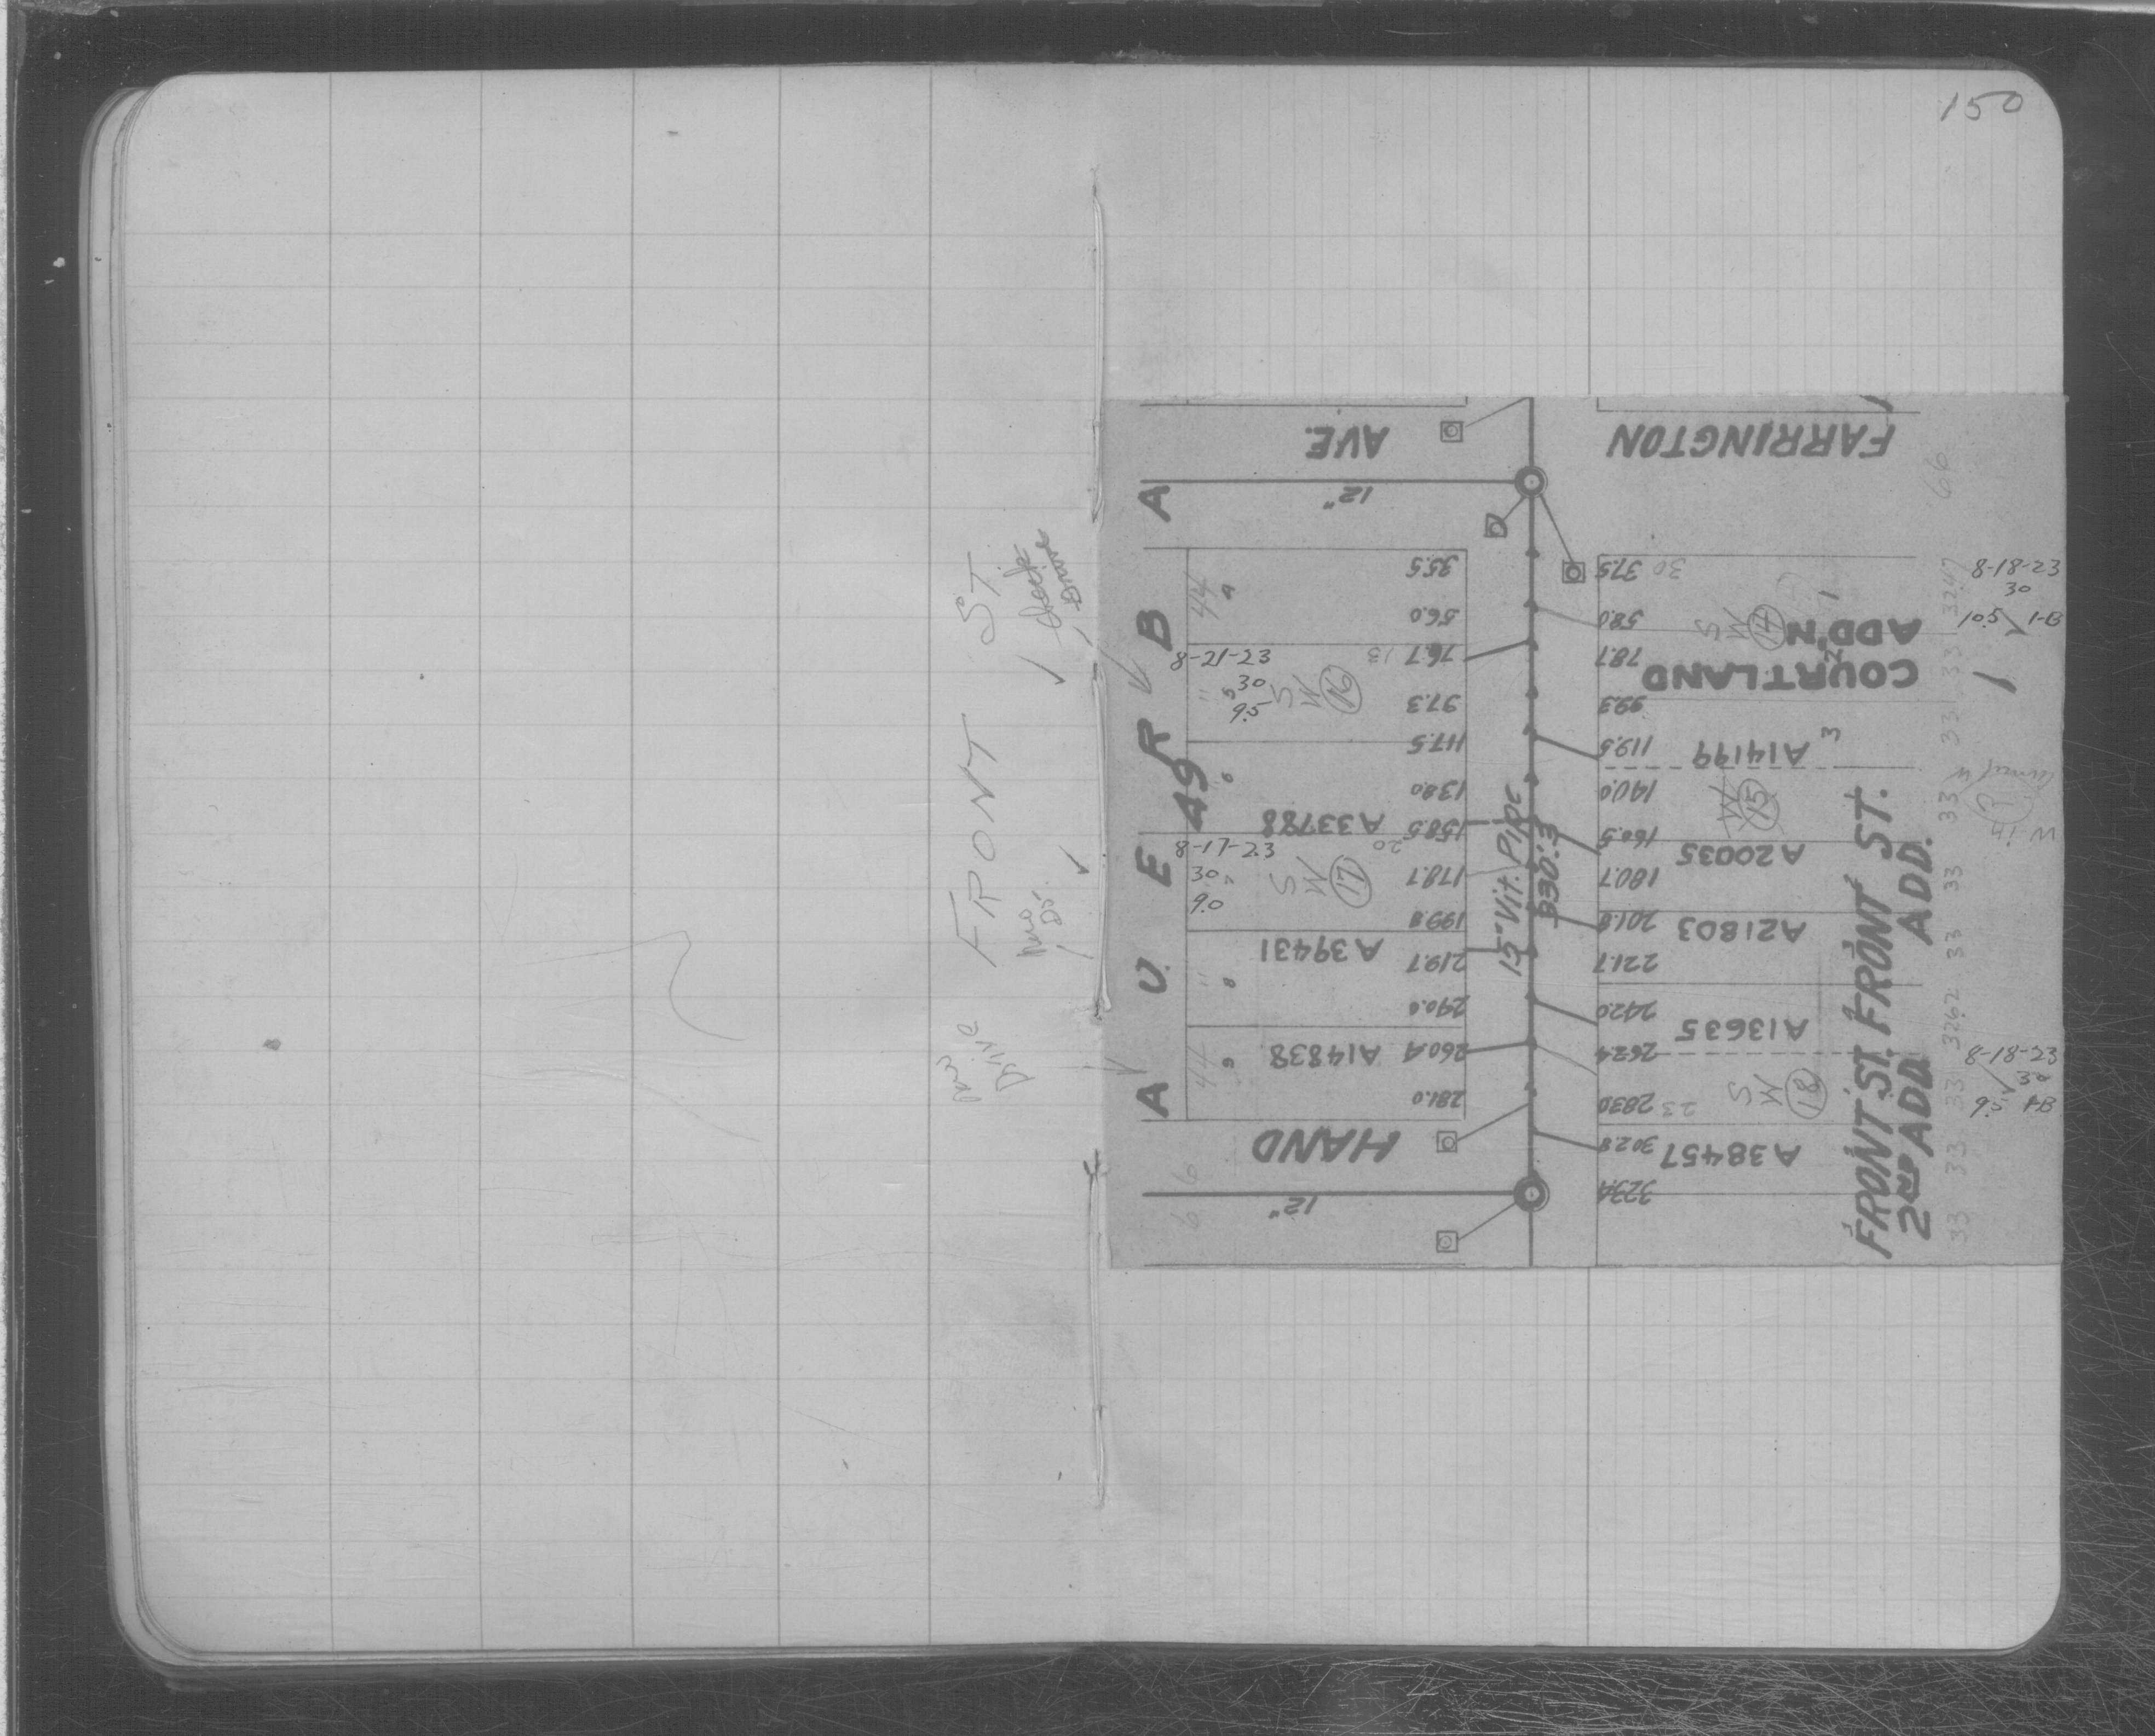 150
FRONT ST
FARRINGTON AVE.
12"
A U E R B A
A9
35.5
56.0
76.7 13
97.3
117.5
138.0
158.5
178.7
199.8
219.7
240.0
260.4
281.0
37.5 30
58.0
78.7
99.3
119.5
140.0
160.5
180.7
201.8
221.7
242.0
262.4
283.0 23
302.8
323.4
8-21-23
30
9.5
S
W
16
A33788
20
8-17-23
30
9.0
S
W
17
A39431
A14838
44
44
15" Vit. Pipe
330.3
S
W
14
1
COURTLAND ADD'N
A14199
3
W
15
A20035
A21803
A13635
S
W
18
A38457
FRONT ST. ADD.
FRONT ST. 2ND ADD.
66
3247
33
33
33
33
33
3262
33
33
33
8-18-23
30
10.5 1-B
8-18-23
30
9.5 1-B
HAND
12"
66